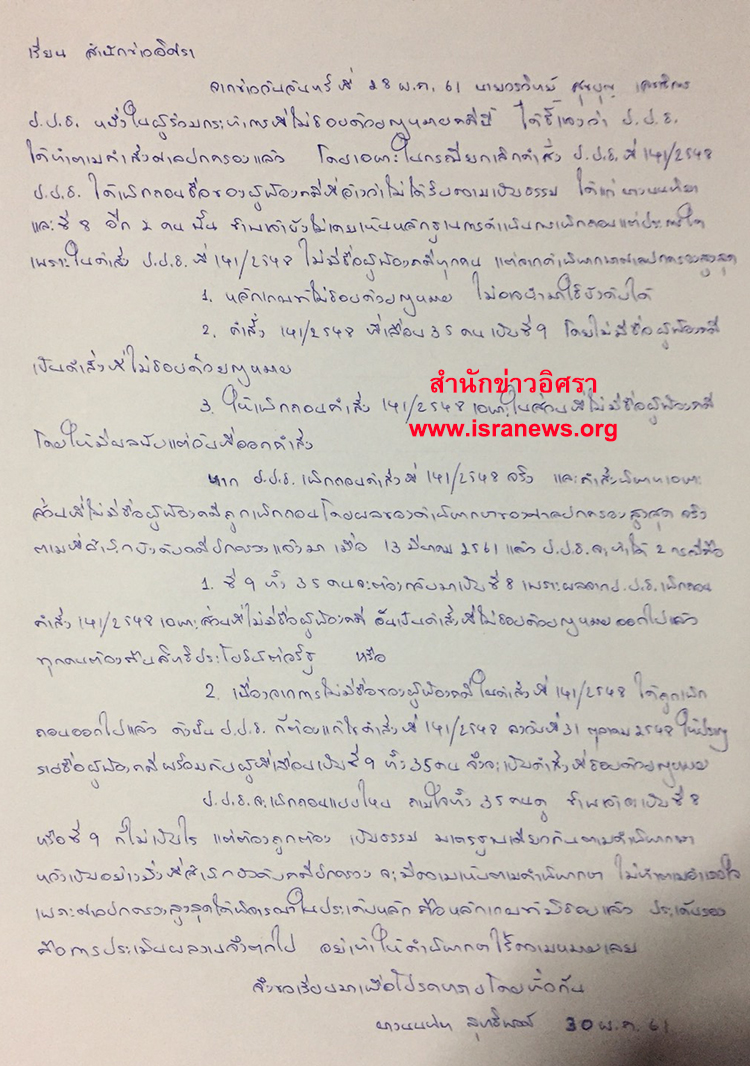 เรียน สำนักข่าวอิศรา
จากข่าววันจันทร์ที่ 28 พ.ค. 61 นายวรวิทย์ สุขบุญ เลขาธิการ
ป.ป.ช. หนึ่งในผู้ร่วมกระทำการที่ไม่ชอบด้วยกฎหมายคดีนี้ ได้ชี้แจงว่า ป.ป.ช.
ได้ทำตามคำสั่งศาลปกครองแล้ว โดยเฉพาะในกรณียกเลิกคำสั่ง ป.ป.ช. ที่ 141/2548
ป.ป.ช. ได้เพิกถอนชื่อของผู้ฟ้องคดีที่อ้างว่าไม่ได้รับความเป็นธรรม ได้แก่
และซี 8 อีก 2 คน นั้น ข้าพเจ้ายังไม่เคยเห็นหลักฐานการดำเนินการเพิกถอนแต่ประการใด
เพราะในคำสั่ง ป.ป.ช. ที่ 141/2548 ไม่มีชื่อผู้ฟ้องคดีทุกคน แต่จากคำพิพากษาศาลปกครองสูงสุด
1. หลักเกณฑ์ไม่ชอบด้วยกฎหมาย ไม่อาจนำมาใช้บังคับได้
2. คำสั่ง 141/2548 ที่เลื่อน 35 คน เป็นซี 9 โดยไม่มีชื่อ ผู้ฟ้องคดี
เป็นคำสั่งที่ไม่ชอบด้วยกฎหมาย
สำนักข่าวอิศรา
3. ให้เพิกถอนคำสั่ง 141/2548 เฉพาะในส่วนที่ไม่มีชื่อผู้ฟ้องคดี
www.isranews.org
โดยให้มีผลนับแต่วันที่ออกคำสั่ง
หาก ป.ป.ช. เพิกถอนคำสั่งที่ 141/2548 จริง และคำสั่งพิพาทเฉพาะ
ส่วนที่ไม่มีชื่อผู้ฟ้องคดีถูกเพิกถอนโดยผลของคำพิพากษาของศาลปกครองสูงสุด จริง
ตามที่สำนักบังคับคดีปกครองแจ้งมา เมื่อ 13 มีนาคม 2561 แล้ว ป.ป.ช. จะทำได้ 2 กรณีคือ
1. ซี 9 ทั้ง 35 คนจะต้องกลับมาเป็นซี 8 เพราะผลจาก ป.ป.ช. เพิกถอน
คำสั่ง 141/2548 เฉพาะส่วนที่ไม่มีชื่อผู้ฟ้องคดี อันเป็นคำสั่งที่ไม่ชอบด้วยกฎหมาย ออกไปแล้ว
ทุกคนต้องคืนสิทธิประโยชน์ต่อรัฐ หรือ
2. เนื่องจากการไม่มีชื่อของผู้ฟ้องคดีในคำสั่งที่ 141/2548 ได้ถูกเพิก
ถอนออกไปแล้ว ดังนั้น ป.ป.ช. ก็ต้องแก้ไขคำสั่งที่ 141/2548 ลงวันที่ 31 ตุลาคม 2548 ให้ปรากฏ
รายชื่อผู้ฟ้องคดีพร้อมกับผู้ที่เลื่อนเป็นซี 9 ทั้ง 35 คน จึงจะเป็นคำสั่งที่ชอบด้วยกฎหมาย
ป.ป.ช. จะเพิกถอนแบบไหน ถามใจทั้ง 35 คนดู ข้าพเจ้าจะเป็นซี 8
หรือซี 9 ก็ไม่เป็นไร แต่ต้องถูกต้อง เป็นธรรม มาตรฐานเดียวกันตามคำพิพากษา
หวังเป็นอย่างยิ่งที่สำนักบังคับคดีปกครอง จะมีความเห็นตามคำพิพากษา ไม่ทำตามอำเภอใจ
เพราะศาลปกครองสูงสุดได้พิจารณาในประเด็นหลัก คือหลักเกณฑ์มิชอบแล้ว ประเด็นรอง
คือการประเมินผลงานจึงตกไป อย่าทำให้คำพิพากษาไร้ความหมายเลย
จึงขอเรียนมาเพื่อโปรดทราบโดยทั่วกัน
30 พ.ค. 61